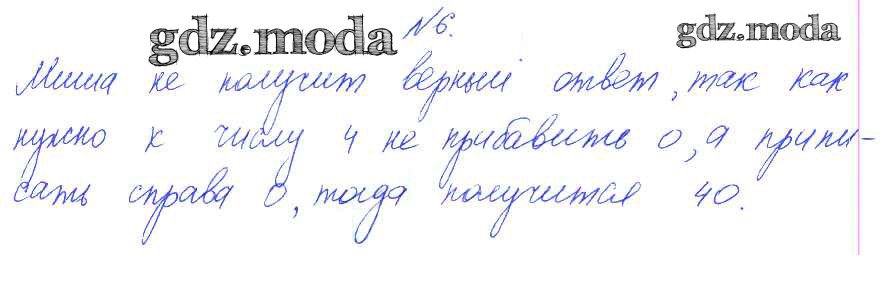 gdz.moda №6. gdz.moda
Миша не получит верный ответ, так как
нужно к числу 4 не прибавить 0, а припи-
сать справа 0, тогда получится 40.